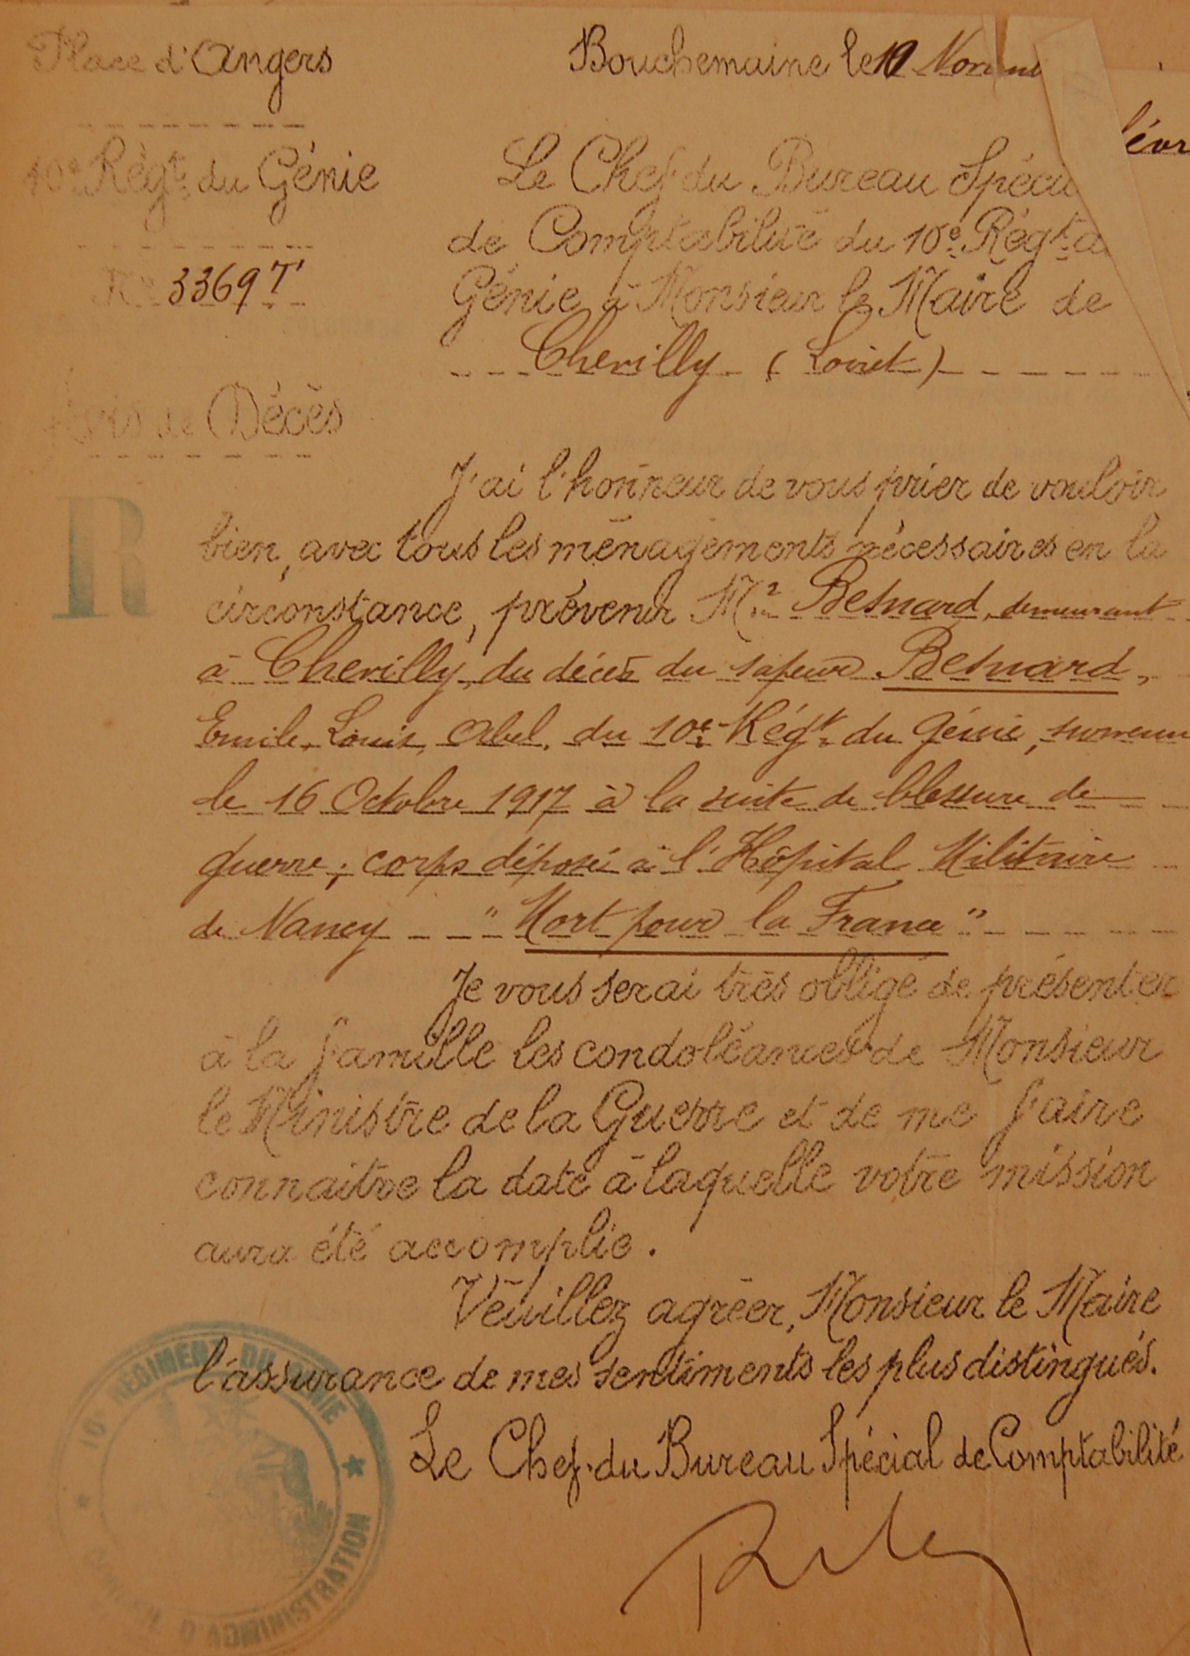 Place d'Angers
Bouchemaine le
10e Régt du Génie
N° 3369 T
Avis de Décès
R
Le Chef du Bureau Spécia
de Comptabilité du 10e Régt d
Génie à Monsieur le Maire de
Chevilly (Loiret)
J'ai l'honneur de vous prier de vouloir
bien, avec tous les ménagements nécessaires en la
circonstance, prévenir Mr Besnard, demeurant
à Chevilly, du décès du sapeur Besnard,
Emile, Louis, Abel, du 10e Régt du Génie, survenu
le 16 Octobre 1917 à la suite de blessure de
guerre; corps déposé à l'Hôpital Militaire
de Nancy "Mort pour la France"
Je vous serai très obligé de présenter
à la famille les condoléances de Monsieur
le Ministre de la Guerre et de me faire
connaitre la date à laquelle votre mission
aura été accomplie.
Veuillez agréer, Monsieur le Maire
l'assurance de mes sentiments les plus distingués.
Le Chef du Bureau Spécial de Comptabilité
10e RÉGIMENT DU GÉNIE
CONSEIL D'ADMINISTRATION